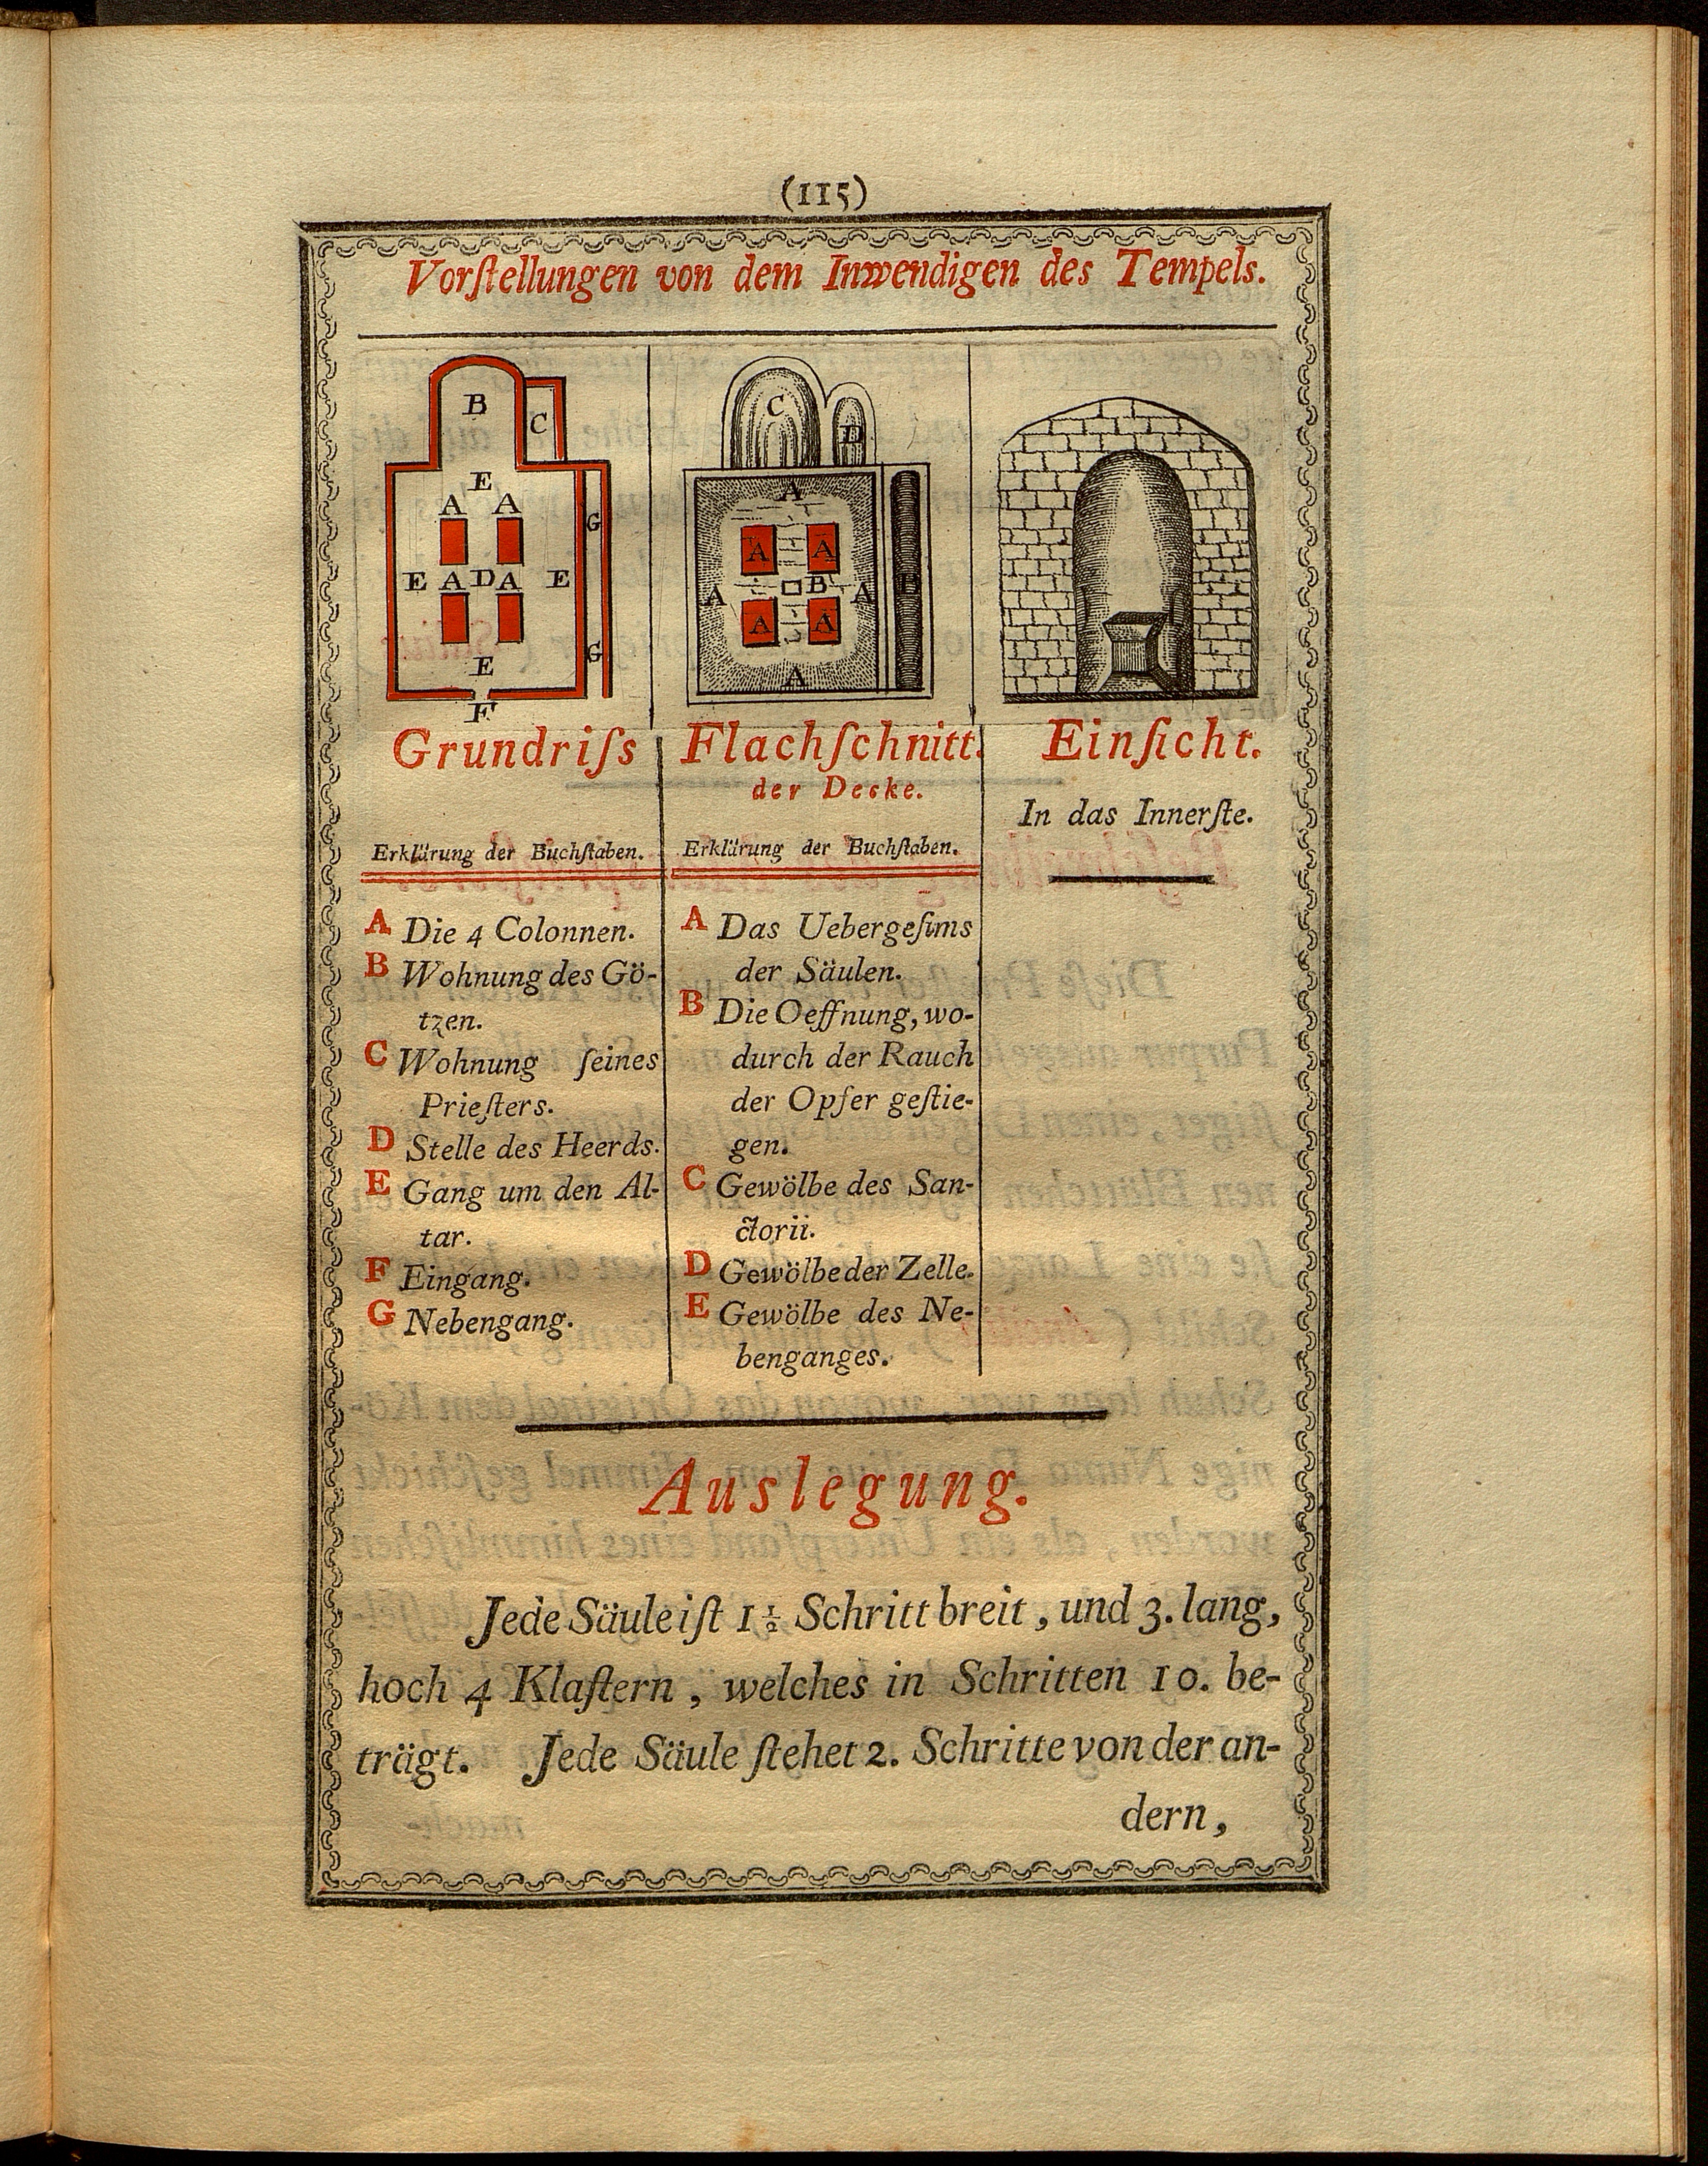 (115)
Vorſtellungen von dem Inwendigen des Tempels.
B
C
E
A A
G
E A D A E
G
E
F
C
D
A
A A
A B A
A A
A
Grundriſs
Erklärung der Buchſtaben.
A Die 4 Colonnen.
B Wohnung des Gö-
tzen.
C Wohnung ſeines
Prieſters.
D Stelle des Heerds.
E Gang um den Al-
tar.
F Eingang.
G Nebengang.
Flachſchnitt.
der Decke.
Erklärung der Buchſtaben.
A Das Uebergeſims
der Säulen.
B Die Oeffnung, wo-
durch der Rauch
der Opfer geſtie-
gen.
C Gewölbe des San-
ctorii.
D Gewölbe der Zelle.
E Gewölbe des Ne-
benganges.
Einſicht.
In das Innerſte.
Auslegung.
Jede Säule iſt 1 1/2 Schritt breit, und 3. lang,
hoch 4 Klaftern, welches in Schritten 10. be-
trägt. Jede Säule ſtehet 2. Schritte von der an-
dern,